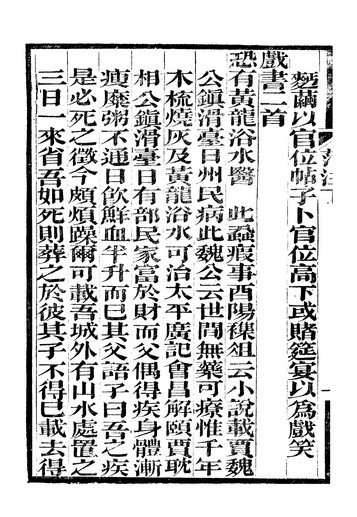 麪繭以官位帖子卜官位高下或賭筵宴以為戲笑
戲書二首
恐有黃龍浴水醫　此蝨瘕事酉陽雜俎云小說載賈魏
公鎮滑臺日州民病此魏公云世閒無藥可療惟千年
木梳燒灰及黃龍浴水可治太平廣記會昌解頤賈耽
相公鎮滑臺日有部民家富於財而父偶得疾身體漸
瘦糜粥不通日飲鮮血半升而巳其父語子曰吾之疾
是必死之徵今頗煩躁爾可載吾城外有山水處置之
三日一來省吾如死則葬之於彼其子不得巳載去得